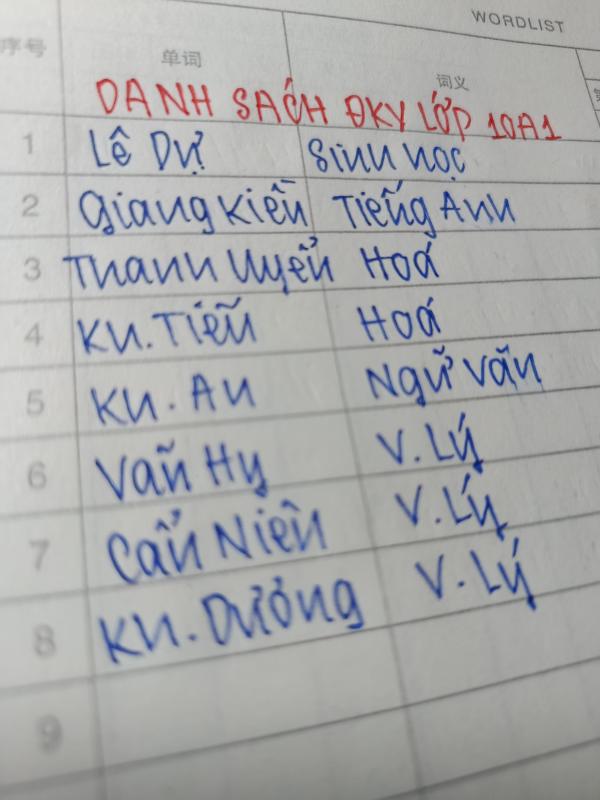 WORDLIST
序号 单词 词义
DANH SÁCH ĐKY LỚP 10A1
1 Lê Dự Sinh học
2 Giang Kiều Tiếng Anh
3 Thanh Uyển Hoá
4 KH. Tiễn Hoá
5 KH. An Ngữ Văn
6 Văn Hy V. Lý
7 Cẩn Niên V. Lý
8 KH. Dương V. Lý
9